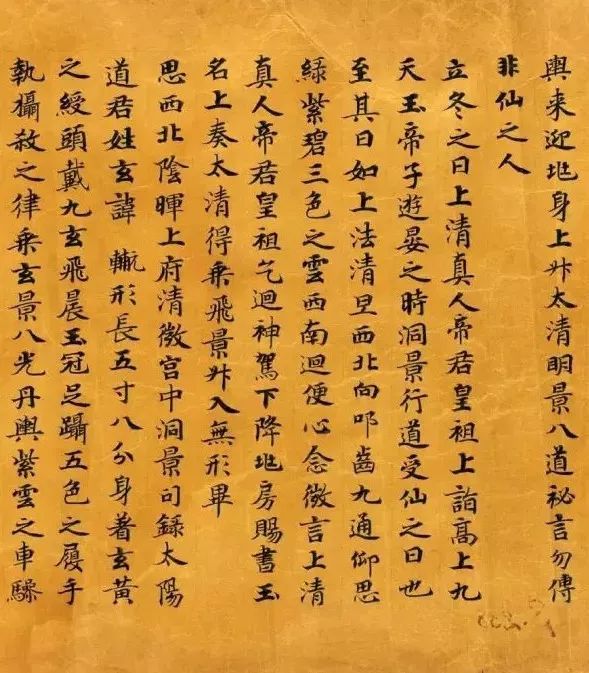 輿来迎兆身上升太清明景八道祕言勿傳
非仙之人
立冬之日上清真人帝君皇祖上詣高上九
天玉帝子遊晏之時洞景行道受仙之日也
至其日如上法清旦西北向叩齒九通仰思
綠紫碧三色之雲西南迴便心念微言上清
真人帝君皇祖乞迴神駕下降兆房賜書玉
名上奏太清得乘飛景升入無形畢
思西北陰暉上府清微宮中洞景司錄太陽
道君姓玄諱 形長五寸八分身著玄黃
之綬頭戴九玄飛晨玉冠足躡五色之履手
執攝殺之律乘玄景八光丹輿紫雲之車驂